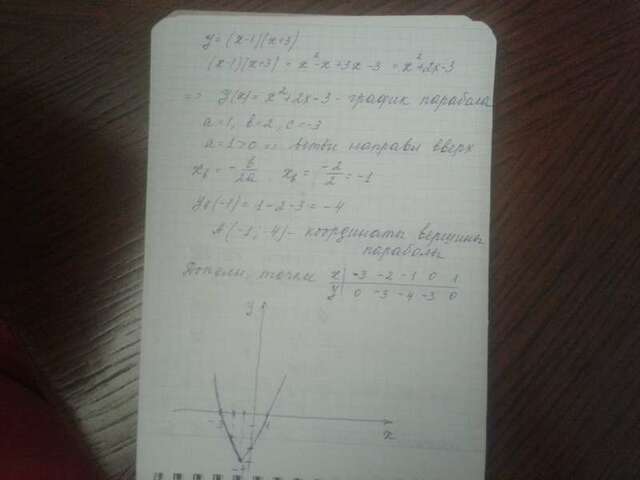 y = (x-1)(x+3)
(x-1)(x+3) = x²-x+3x-3 = x²+2x-3
=> y(x) = x²+2x-3 - график парабола
a=1, b=2, c=-3
a=1>0 => ветви направл вверх
x_b = -b/2a x_b = -2/2 = -1
y_b(-1) = 1-2-3 = -4
A(-1; -4) - координаты вершины
параболы
Дополн. точки x | -3 -2 -1 0 1
y | 0 -3 -4 -3 0
y
-3 1
x
-4